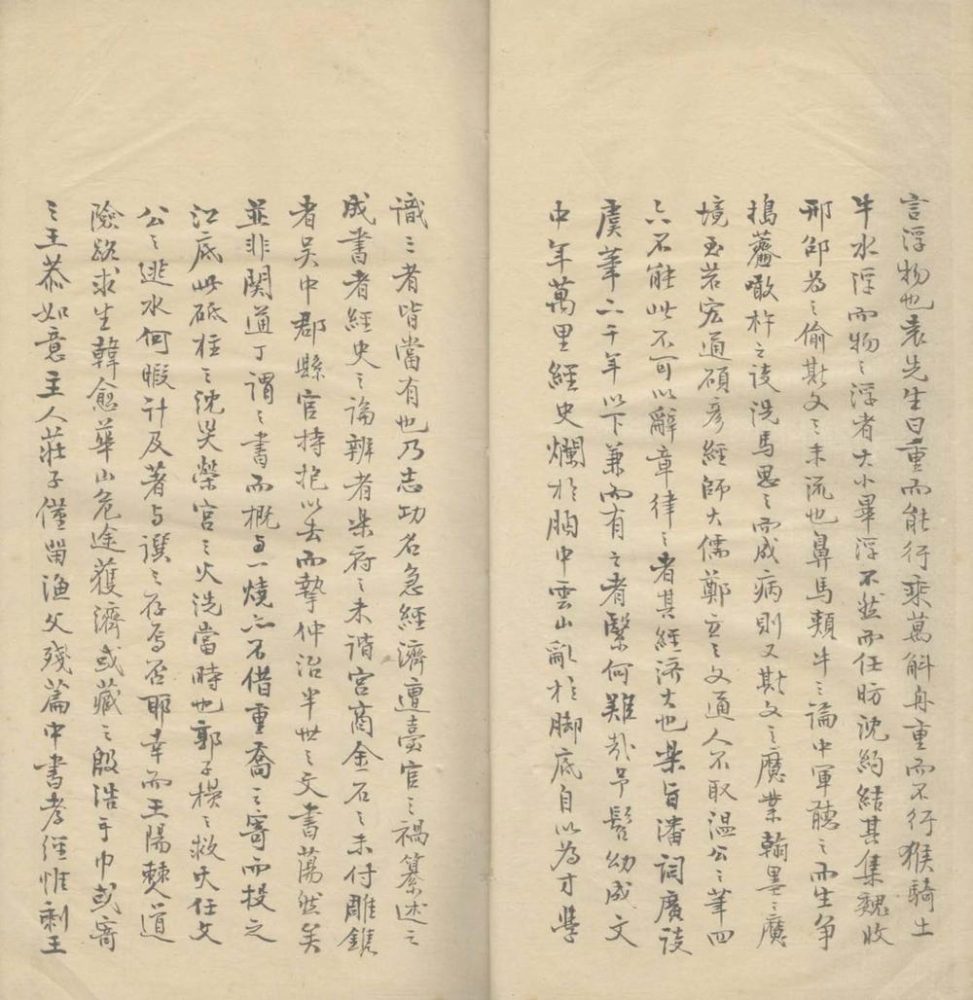 言浮物也袁先生曰重而能行乘萬斛舟重而不行猴騎土
牛水浮而物之浮者大小畢浮不然而任昉沈約結其集魏收
邢邵為之偷斯文之末流也鼻馬類牛之論中軍聽之而生爭
搗虀噉杵之談洗馬思之而成病則又斯文之魔業翰墨之魔
境玉若宏通碩彥經師大儒鄭玄之文通人不取溫公之筆四
六不能此不可以辭章律之者其經济大也樂旨潘詞廣談
虞筆二千年以下兼而有之者繄何難哉予髫幼成文
中年萬里經史爛於胸中雲山亂於脚底自以為才學
識三者皆當有也乃志功名急經濟遭臺官之禍纂述之
成書者經史之論辨者樂府之未諧宮商金石之未付雕鐫
者吳中郡縣官持抱以去而摯仲治半世之文書蕩然矣
並非関道丁謂之書而概与一燒亦不借重喬之寄而投之
江底此砥柱之沈災榮宮之火洗當時也郭子橫之救火任文
公之逃水何暇計及著与譔之存焉否耶幸而王陽棘人道
險跽求生韓愈華山危途獲濟或藏之殷浩手巾或寄
之王恭如意主人莊子僅留漁父殘篇中書孝經惟剩王